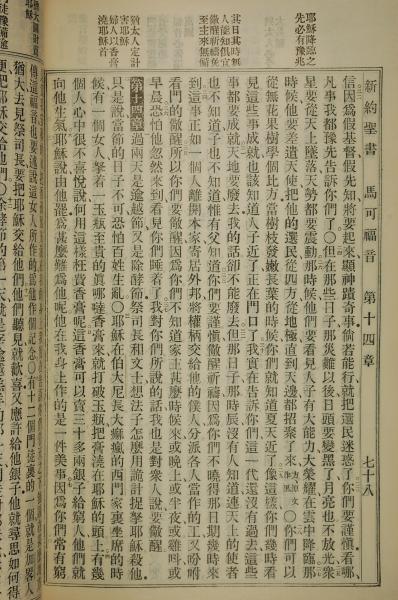 新約聖書 馬可福音 第十四章 七十八
耶穌降臨之
先必有豫兆
其日其時無
人能知但宜
儆醒祈禱免
至主來無備
猶太人定計
害耶穌
婦人以香膏
信因為假基督假先知將要起來顯神蹟奇事倘若能行就把選民迷惑了你們要謹慎看哪
凡事我都豫先告訴你們了〇但在那些日子那災難以後日頭要變黑了月亮也不放光衆
星要從天上墜落天勢都要震動那時候他們要看見人子有大能力大榮耀在雲中降臨那
時候他要差遣天使把他的選民從四方從地極直到天邊都招聚了來〇你們可以
從無花果樹學個比方當樹枝發嫩長葉的時候你們就知道夏天近了像這樣你們幾時看
見這些事成就也該知道人子近了正在門口了我實在告訴你們這一代還沒有過去這些
事都要成就天地要廢去我的話卻不能廢去但那日子那時辰沒有人知道連天上的使者
也不知道子也不知道惟有父知道你們要謹慎儆醒祈禱因為你們不曉得那日期幾時來
到這事正如一個人離開本家寄居外邦將權柄交給他的僕人分派各人當作的工又吩咐
看門的儆醒所以你們要儆醒因為你們不知道家主甚麼時候來或晚上或半夜或雞叫或
早晨恐怕他忽然來到看見你們睡着了我對你們所說的話我也是對衆人說要儆醒
第十四章過兩天是逾越節又是除酵節祭司長和文士想法子怎麼用詭計捉拏耶穌殺他
只是說當節的日子不可恐怕百姓生亂〇耶穌在伯大尼長大痲瘋的西門家裏坐席的時
候有一個女人拏着一玉瓶至貴的真哪噠香膏來就打破玉瓶把膏澆在耶穌的頭上有幾
個人心中很不喜悅說何用這樣枉費香膏呢這香膏可以賣三十多兩銀子給窮人他們就
向他生氣耶穌說由他罷為甚麼難為他呢他在我身上作的是一件美事因為你們常有窮
傳這福音也要述說這女人所作的為他作個記念〇有十二個門徒裏的一個就是加畧人
猶大去見祭司長要把耶穌交給他們他們聽見就歡喜又應許給他銀子他就尋思如何得
便把耶穌交給他們〇除酵節的第一天就是